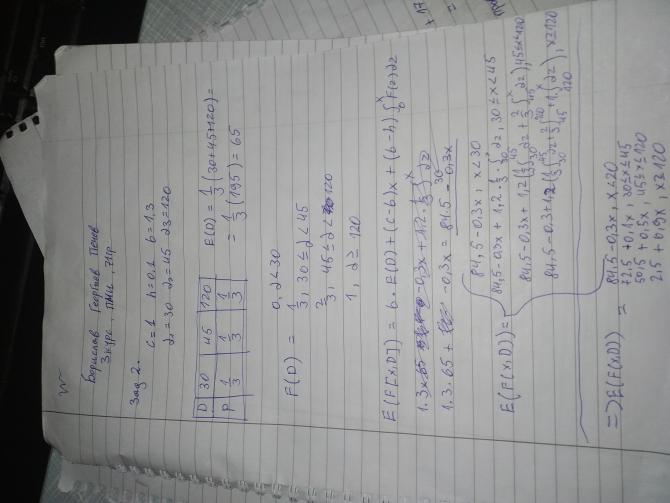 Борислав Георгиев Пенов
3 курс, ПМИ, 71гр.
Зад 2.
c=1 h=0.1 b=1.3
d₁=30 d₂=45 d₃=120
D 30 45 120
P 1/3 1/3 1/3
E(D) = 1/3 (30+45+120) =
= 1/3 (195) = 65
F(D) =
0, d<30
1/3, 30≤d<45
2/3, 45≤d<120
1, d≥120
E(F[x,D]) = b.E(D)+(c-b)x+(b-h)∫₀ˣF(z)dz
1.3.65 + -0,3x = 84.5 - 0,3x
E(F(x,D))=
84,5-0,3x, x<30
84,5-0,3x + 1,2.1/3.∫₃₀ˣdz, 30≤x<45
84,5-0,3x + 1,2(1/3∫₃₀⁴⁵dz + 2/3∫₄₅ˣdz), 45≤x<120
84,5-0.3+1,2(1/3∫₃₀⁴⁵dz+2/3∫₄₅¹²⁰dz+1.∫₁₂₀ˣdz), x≥120
=> E(F(x,D)) =
84,5-0,3x, x<20
72.5+0,1x, 30≤x≤45
50,5+0,5x, 45≤x≤120
2,5+0,9x, x≥120